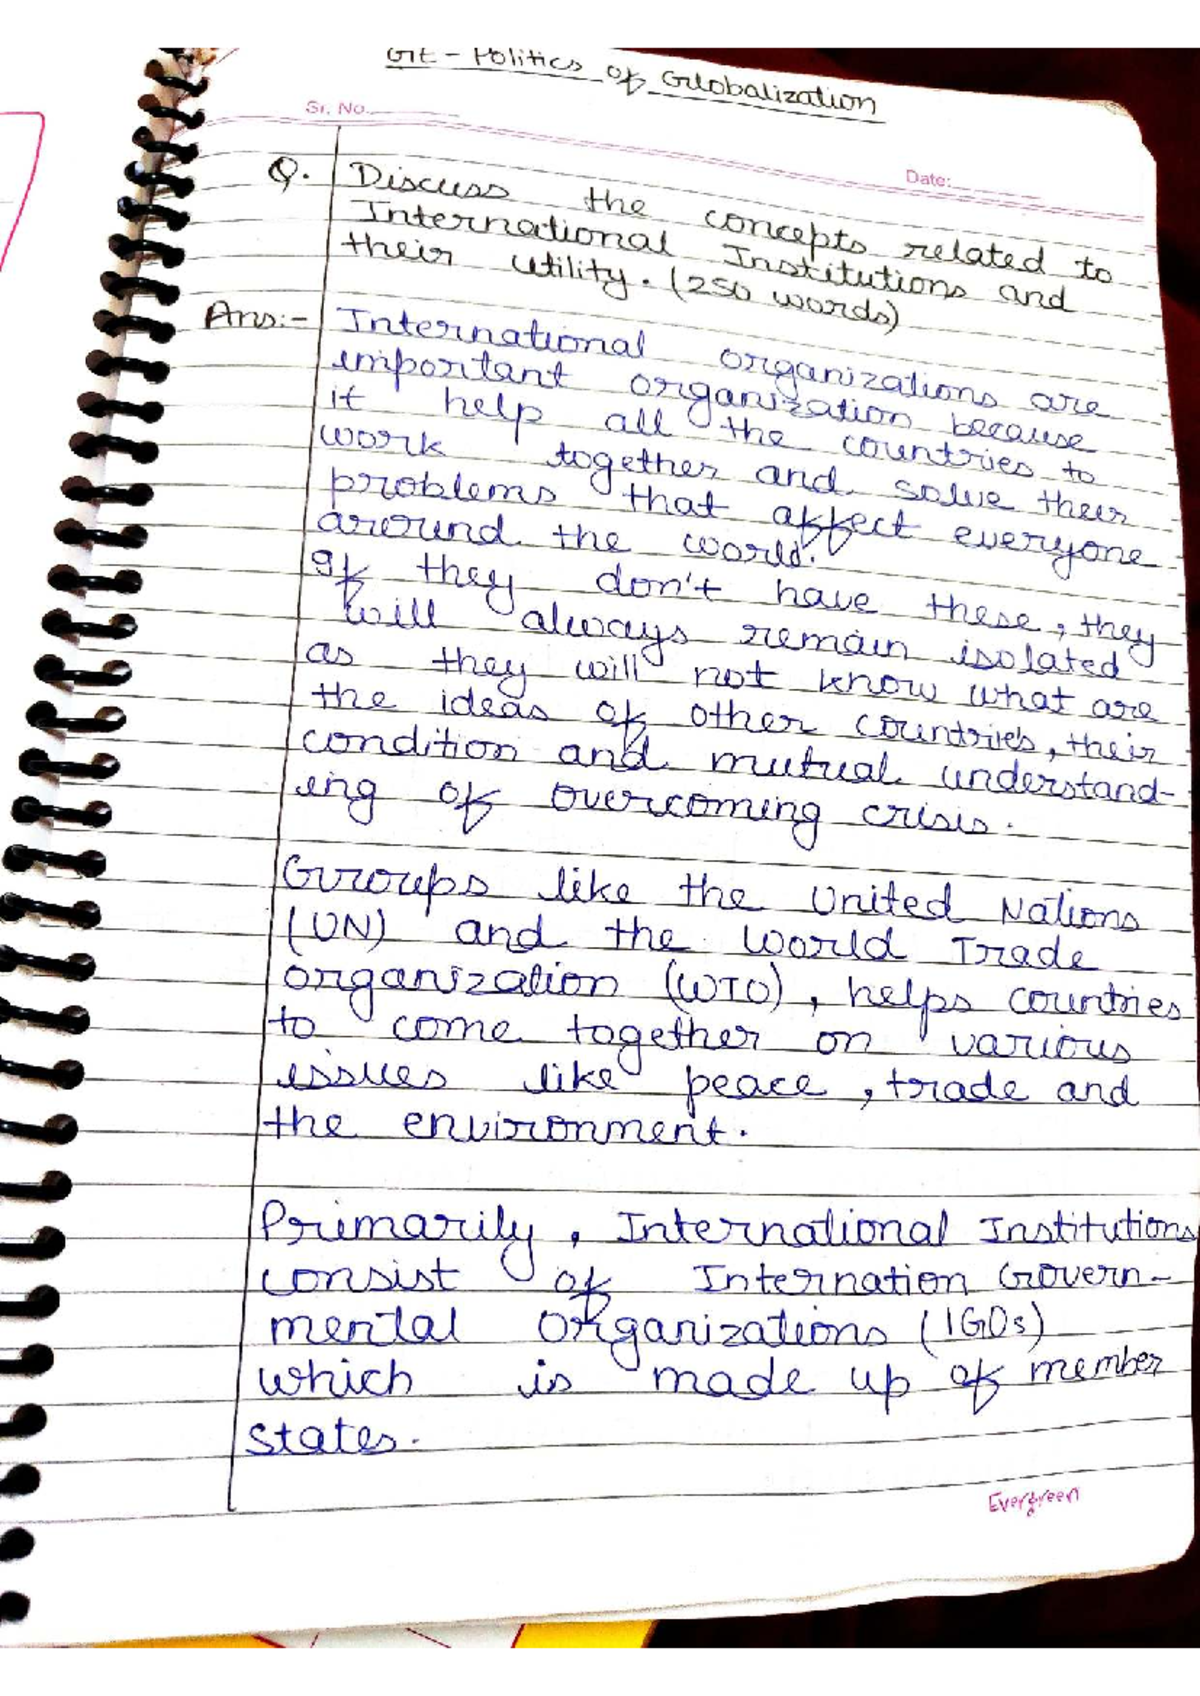 GE - Politics of Globalization
Sr. No.
Date:
Q. Discuss the concepts related to
International Institutions and
their utility. (250 words)
Ans:- International organizations are
important organization because
it help all the countries to
work together and solve their
problems that affect everyone
around the world.
If they don't have these, they
will always remain isolated
as they will not know what are
the ideas of other countries, their
condition and mutual understand-
ing of overcoming crisis.
Groups like the United Nations
(UN) and the World Trade
organization (WTO), helps countries
to come together on various
issues like peace, trade and
the environment.
Primarily, International Institutions
consist of Internation Govern-
mental Organizations (IGOs)
which is made up of member
states.
Evergreen